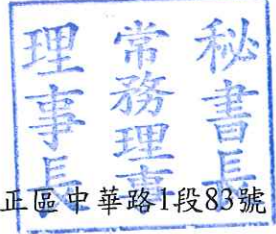 秘書長
常務理事
理事長
正區中華路1段83號